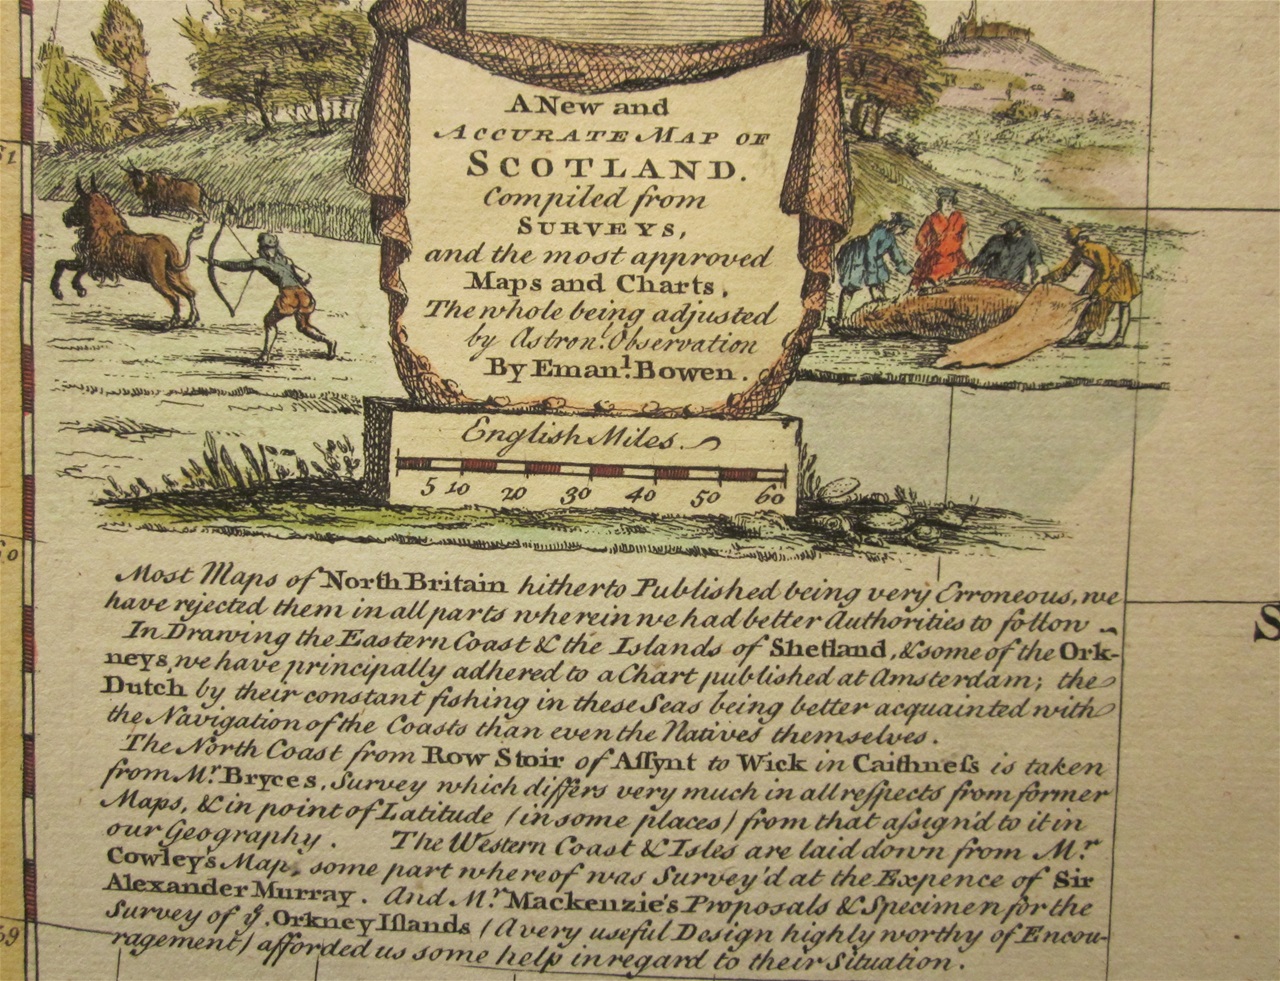 A New and
Accurate Map of
SCOTLAND.
Compiled from
SURVEYS,
and the most approved
Maps and Charts,
The whole being adjusted
by Astron.l Observation
By Eman.l Bowen.
English Miles.
5 10 20 30 40 50 60
61
60
59
S
Most Maps of North Britain hitherto Published being very Erroneous, we
have rejected them in all parts wherein we had better Authorities to follow
In Drawing the Eastern Coast & the Islands of Shetland, & some of the Ork-
neys, we have principally adhered to a Chart published at Amsterdam; the
Dutch by their constant fishing in these Seas being better acquainted with
the Navigation of the Coasts than even the Natives themselves.
The North Coast from Row Stoir of Aſſynt to Wick in Caithneſs is taken
from Mr. Bryces, Survey which differs very much in all reſpects from former
Maps, & in point of Latitude (in some places) from that aſsign'd to it in
our Geography. The Western Coast & Isles are laid down from Mr.
Cowley's Map, some part whereof was Survey'd at the Expence of Sir
Alexander Murray. And Mr. Mackenzie's Proposals & Specimen for the
Survey of ye. Orkney Iſlands (A very useful Design highly worthy of Encou-
ragement) afforded us some help in regard to their Situation.